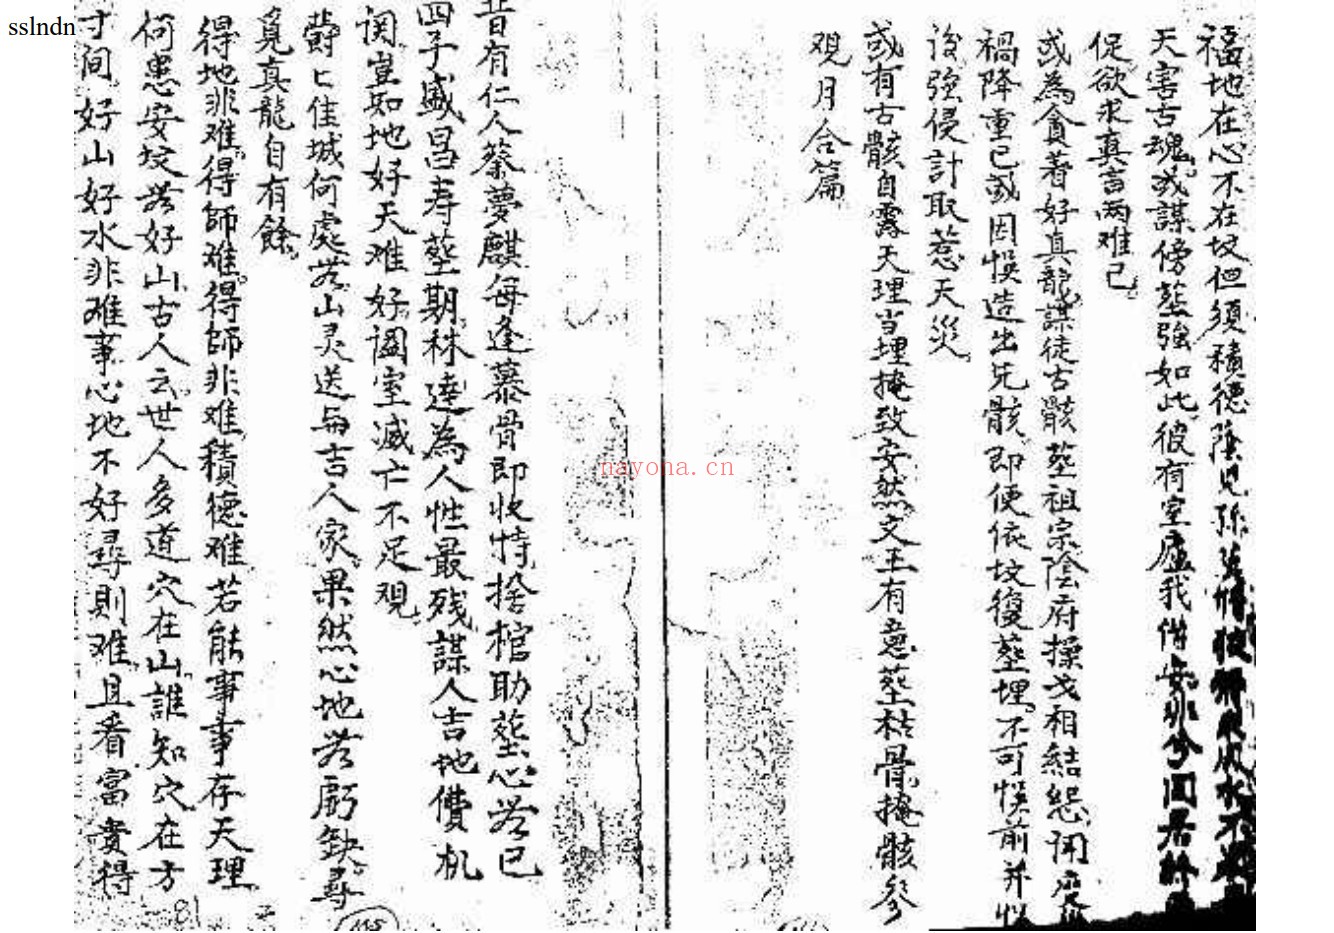 sslndn
福地在心不在坟但须積德陰児孫
天害古魂或謀傍塟強如此彼有室廬我借安
促欲求真言两难已
或為貪着好真龍謀徒古骸塟祖宗陰府操戈相結怨
禍降重已或因悮造出兄骸即便依坟復塟埋不可悮前并
後強侵計取惹天災
或有古骸自露天理当埋掩致安然文王有意塟枯骨掩骸
观月合篇
昔有仁人蔡夢麒每逢暴骨即收特捨棺助塟心苦已
四子盛昌寿塟期秣達為人性最残謀人吉地費机
関豈知地好天难好阖室滅亡不足观
欝匕佳城何處苦山灵送與吉人家果然心地苦虧缺尋
覓真龍自有餘
得地非难得師难得師非难積德难若能事事存天理
何患安坟苦好山古人云世人多道穴在山誰知穴在方
寸间好山好水非难事心地不好尋則难且看富貴得
nayona.cn
81